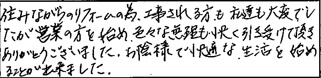 住みながらのリフォームの為、工事される方も、お互に大変でし
たが営業の方を始め、色々な無理も快く引き受けて頂き
ありがとうございました。お陰様で快適な生活を始め
ることが出来ました。